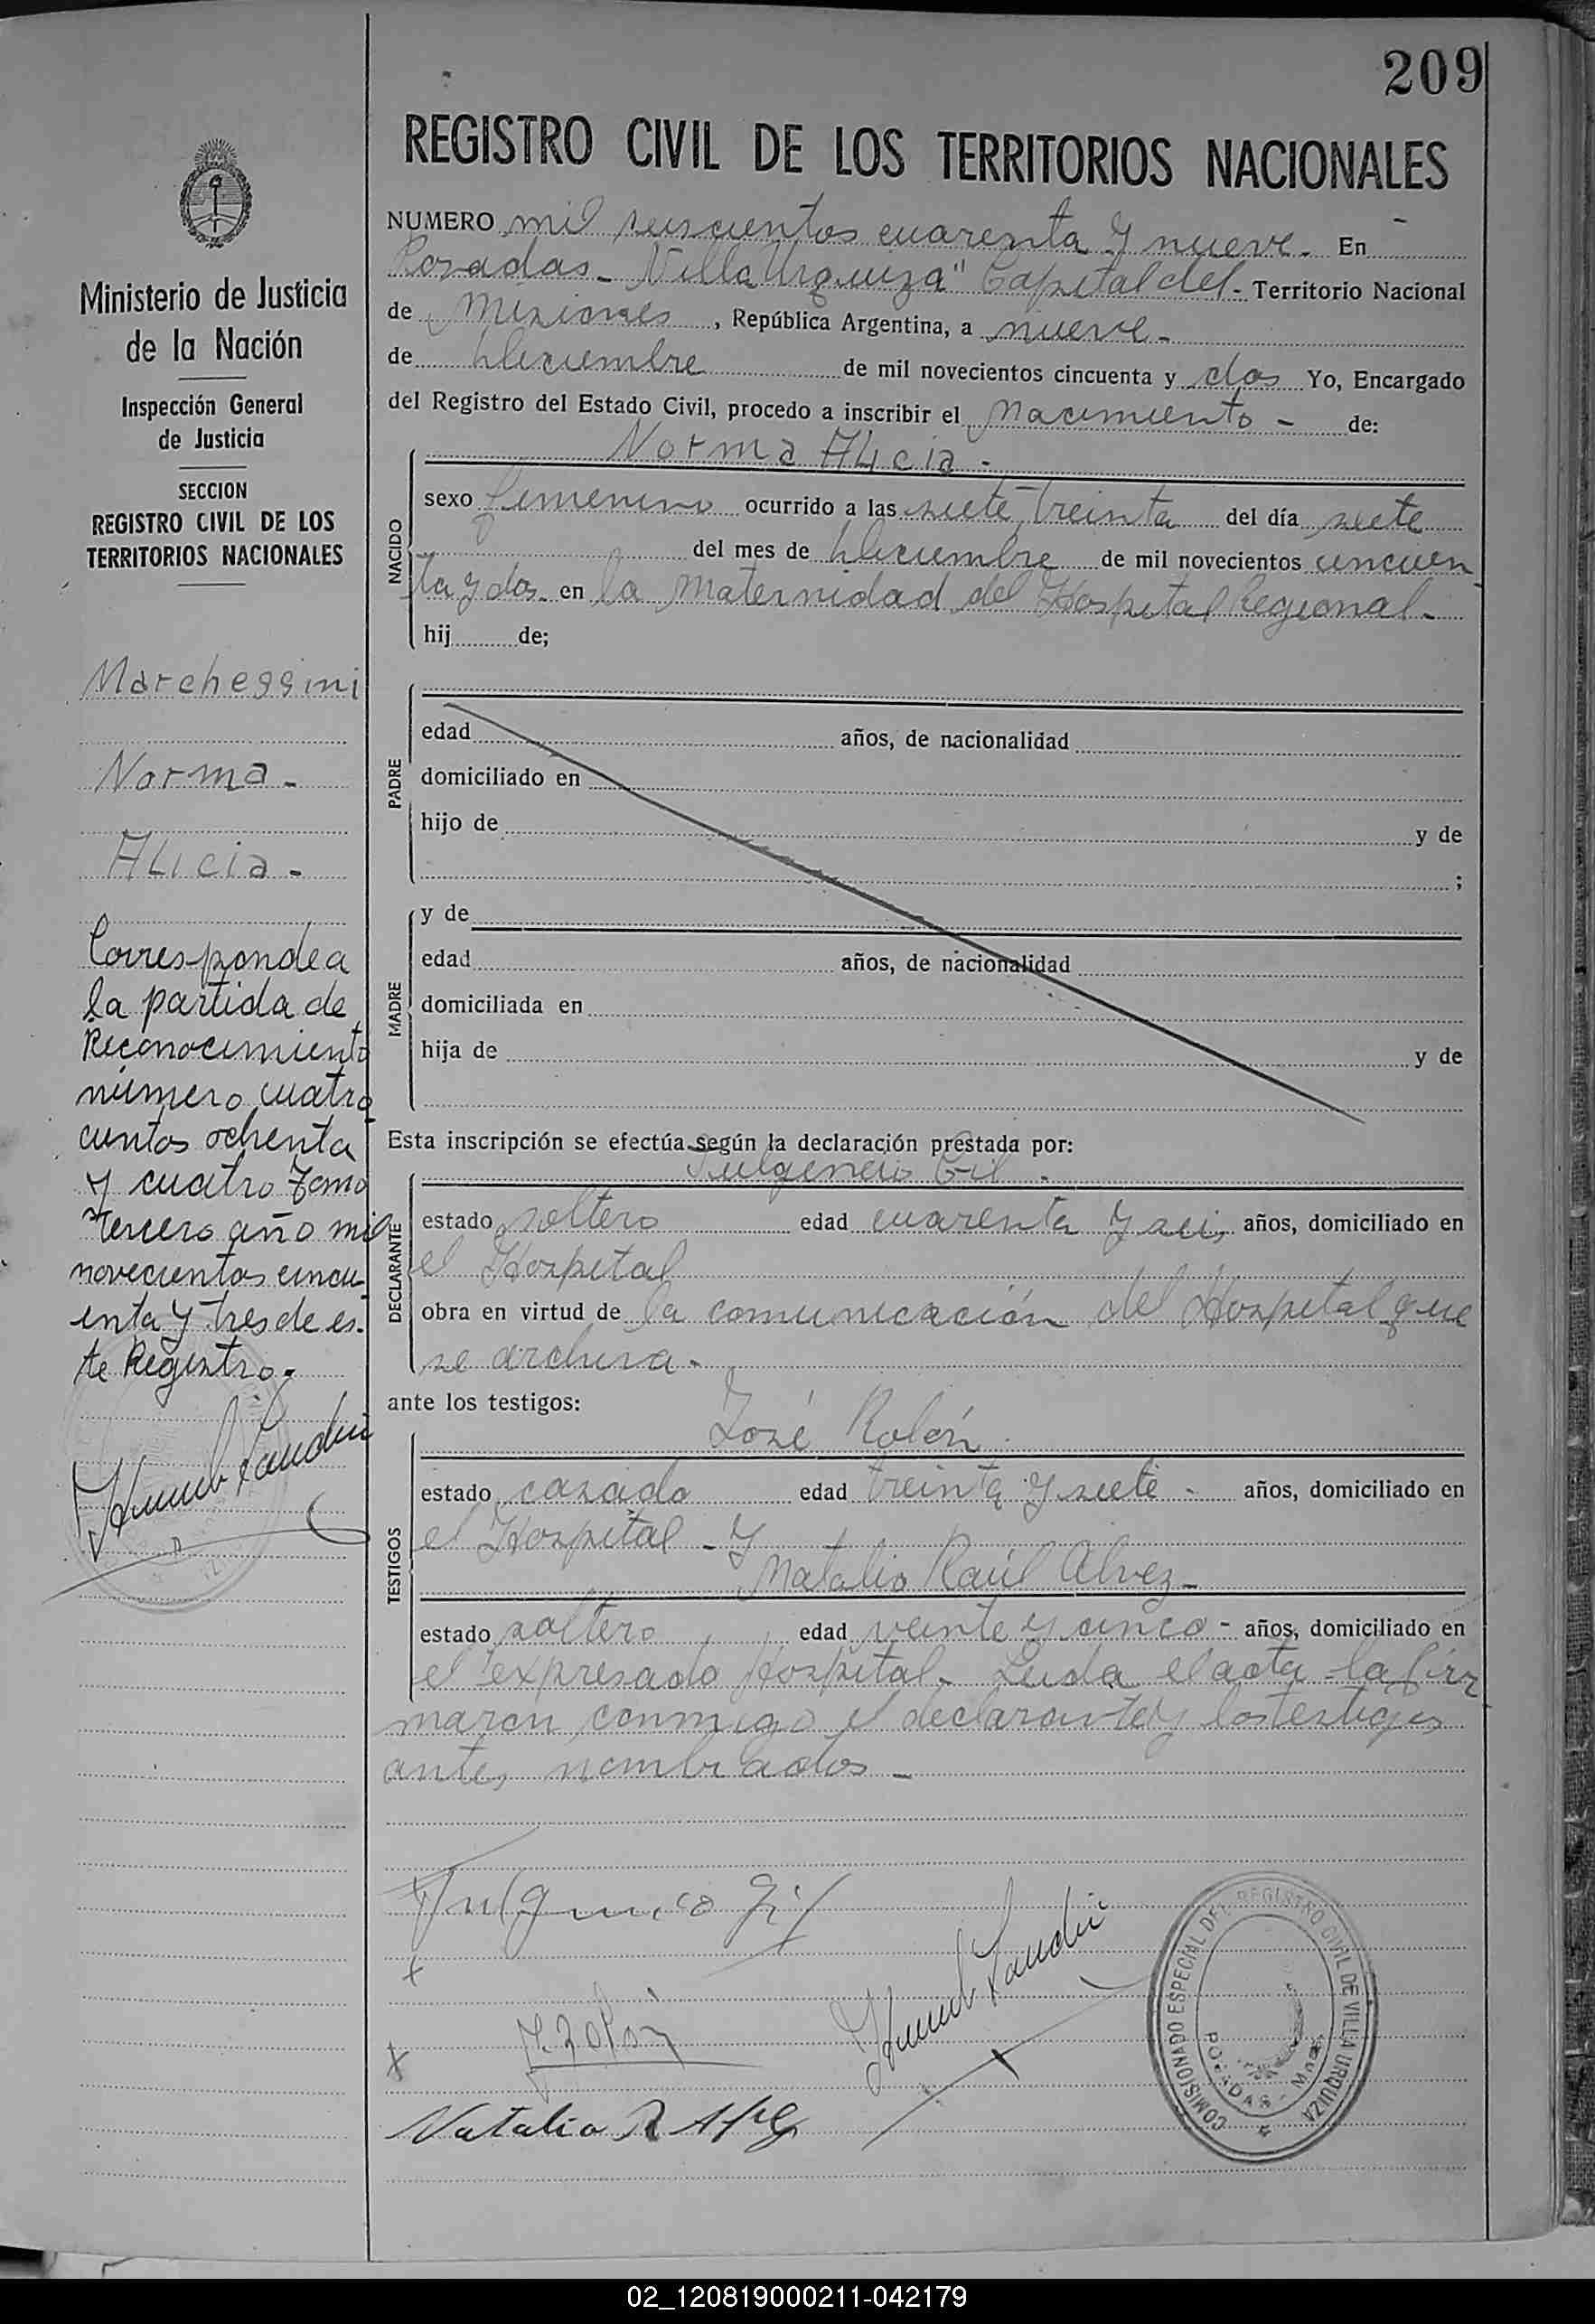 209
REGISTRO CIVIL DE LOS TERRITORIOS NACIONALES
NUMERO mil seiscientos cuarenta y nueve.- En
Posadas - Villa Urquiza" Capital del - Territorio Nacional
de Misiones, República Argentina, a nueve -
de Diciembre de mil novecientos cincuenta y dos Yo, Encargado
del Registro del Estado Civil, procedo a inscribir el Nacimiento - de:
Norma Alicia -
NACIDO
sexo femenino ocurrido a las siete, treinta del día siete
del mes de Diciembre de mil novecientos cincuen
ta y dos - en la Maternidad del Hospital Regional -
hij de;
PADRE
edad años, de nacionalidad
domiciliado en
hijo de y de
;
MADRE
y de
edad años, de nacionalidad
domiciliada en
hija de y de
Esta inscripción se efectúa según la declaración prestada por:
Fulgencio Gil -
DECLARANTE
estado soltero edad cuarenta y seis años, domiciliado en
el Hospital
obra en virtud de la comunicación del Hospital que
se archiva -
ante los testigos:
José Rolón
TESTIGOS
estado casado edad treinta y siete - años, domiciliado en
el Hospital - Y
Natalio Raúl Alvez -
estado soltero edad veinte y cinco - años, domiciliado en
el expresado Hospital - Leida el acta - la fir
maron conmigo el declarante y los testigos
antes nombrados -
Fulgencio Gil
J. Rolón
Natalio R Alvez
COMISIONADO ESPECIAL DEL REGISTRO CIVIL DE VILLA URQUIZA
POSADAS - Mnes
Ministerio de Justicia
de la Nación
Inspección General
de Justicia
SECCION
REGISTRO CIVIL DE LOS
TERRITORIOS NACIONALES
Marcheggini
Norma -
Alicia -
Corresponde a
la partida de
Reconocimiento
número cuatro
cientos ochenta
y cuatro Tomo
Tercero año mil
novecientos cincu
enta y tres de es-
te Registro -
02_120819000211-042179